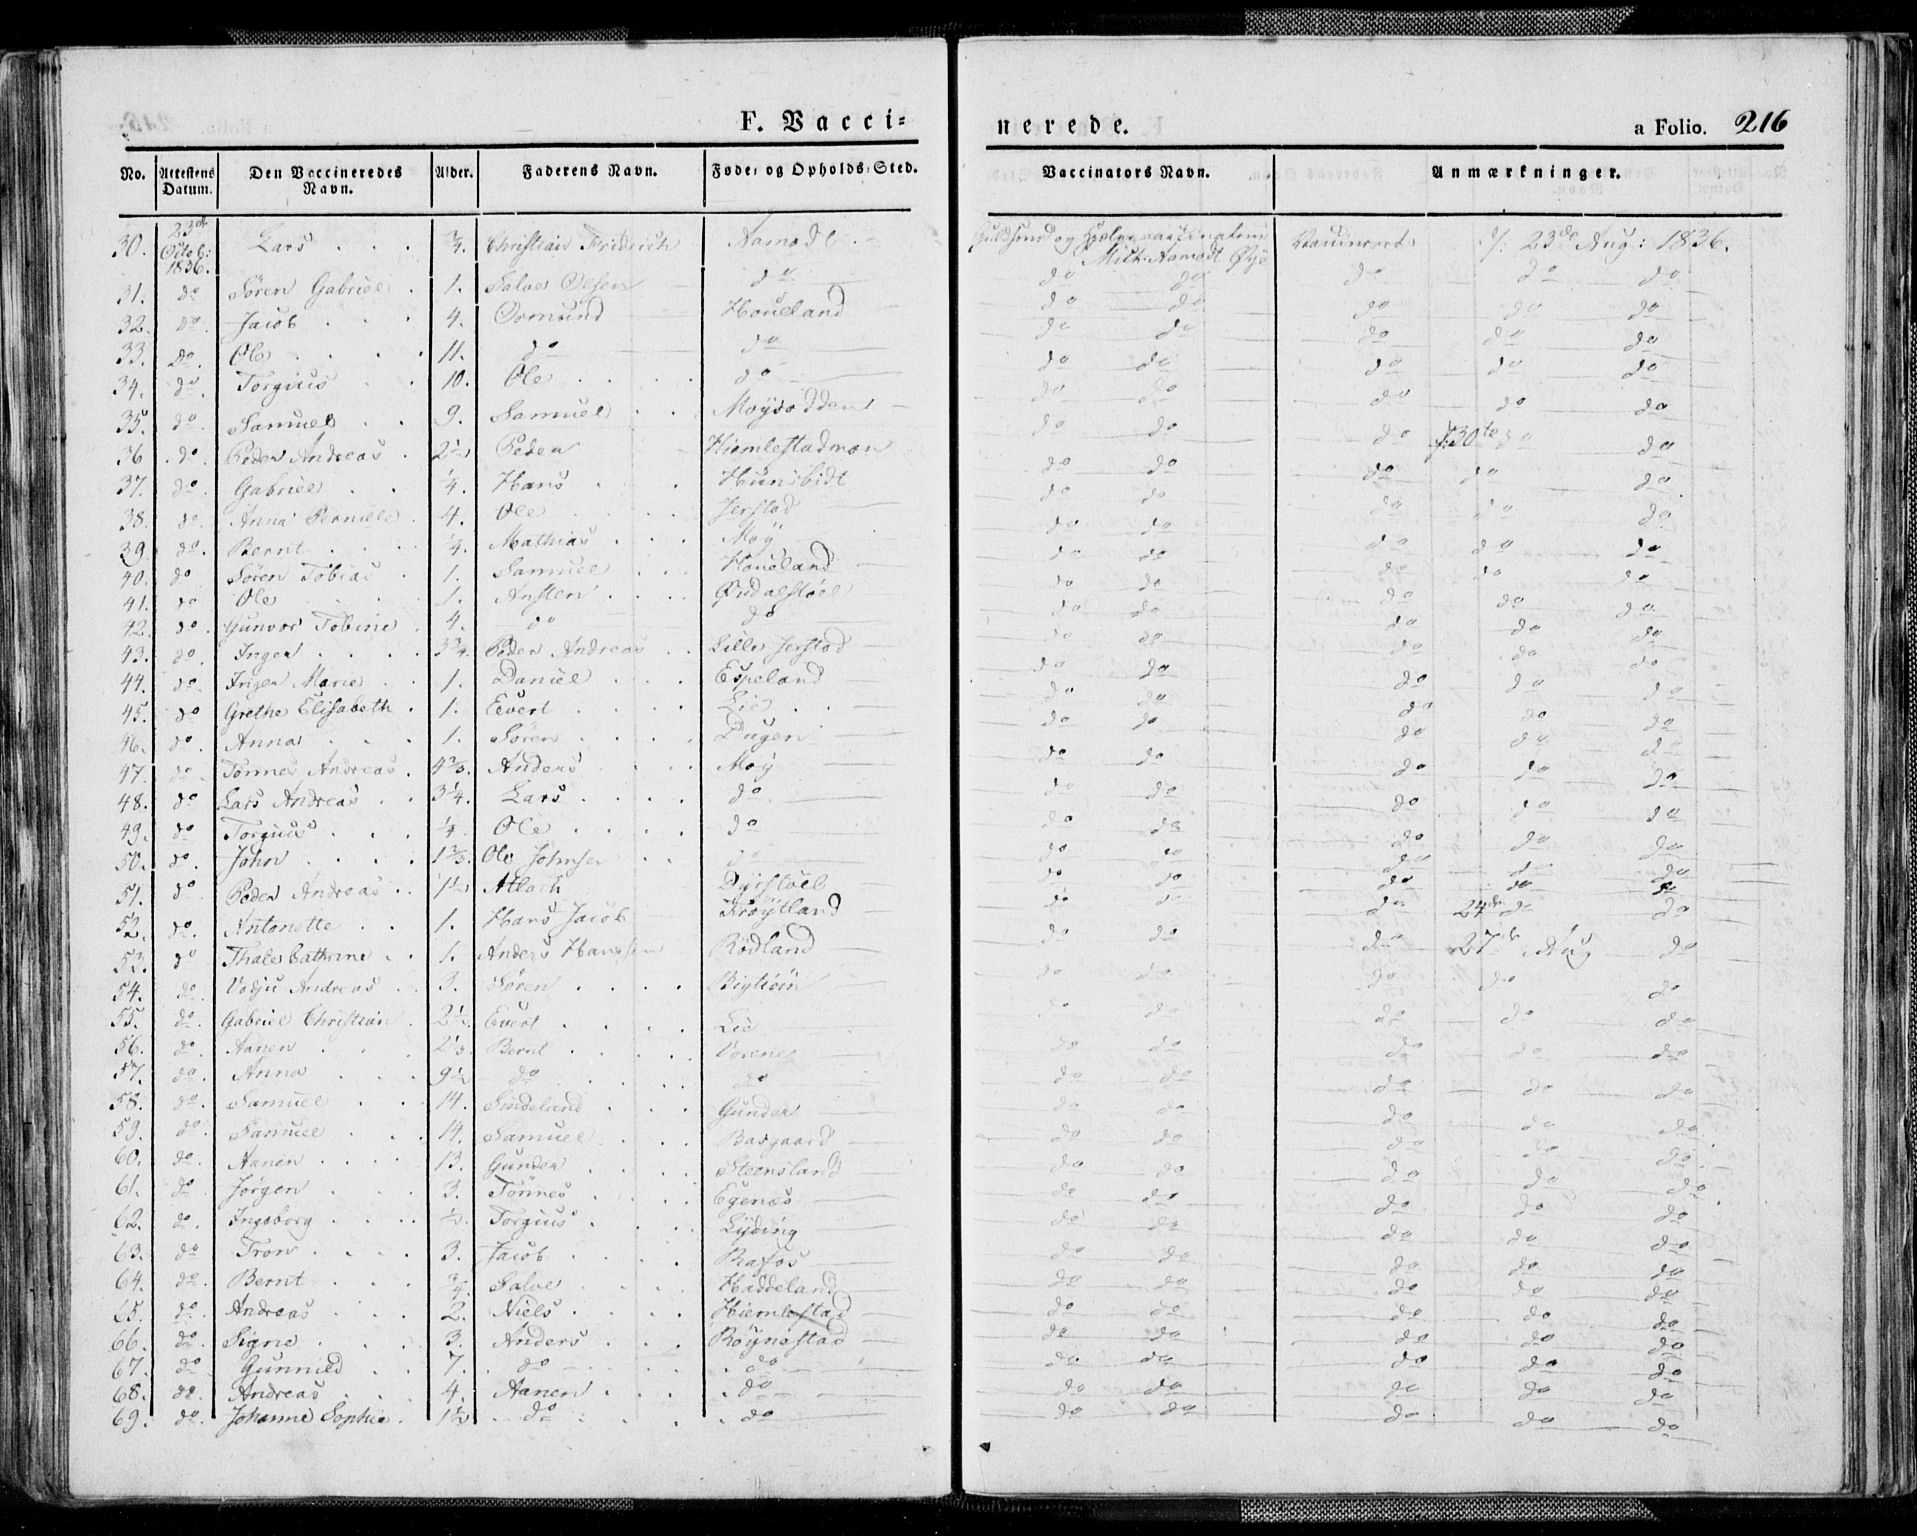 F. Vacci- nerede. a Folio. 216
No. Attestens Datum. Den Vaccineredes Navn. Alder. Faderens Navn. Føde- og Opholds-Sted. Vaccinators Navn. Anmærkninger.
30. 23de Octob: 1836. Lars 3/4. Christian Friderich Aamodt Vaccineret d: 23de Aug: 1836.
Aamodt Øye
31. do Søren Gabriel 1. Salve Olsen do do do do do do
32. do Jacob 4. Osmund Houeland do do do do do
33. do Ole 11. do do do do do do do
34. do Torgius 10. Ole do do do do do do
35. do Samuel 9. Samuel Moysodden do do do do do
36 do Peder Andreas 2 1/2 Peder Hiemlestadmoen do do do d: 30te do do
37. do Gabriel 1/4. Hans Hunsbidt do do do do do
38. do Anna Perniele 4. Ole Jerstad do do do do do
39. do Bernt 1/4. Mathias Moy do do do do do
40. do Søren Tobias 1. Samuel Houeland do do do do do
41. do Ole 1. Austen Qvidalstøel do do do do do
42. do Gunvor Tobine 4. do do do do do do do
43. do Inger 3 3/4. Peder Andreas Lille Jerstad do do do do do
44. do Inger Marie 1. Daniel Espeland do do do do do
45. do Grethe Elisabeth 1. Eevert Lie do do do do do
46. do Anna 1. Søren Dugen do do do do do
47. do Tønnes Andreas 4 2/3. Anders Moy do do do do do
48. do Lars Andreas 3 1/4. Lars do do do do do do
49. do Torgius 1/4 Ole do do do do do do
50. do John 1 2/3. Ole Johnsen do do do do do do
51. do Peder Andreas 1 1/2 Atlach Dyrstøel do do do do do
52. do Antonette 1. Hans Jacob Frøytland do do do 24de do do
53. do Thale Cathrine 1. Anders Hanssen Rødland do do do 27de Aug do
54. do Andreas 3. Søren do do do do do
55. do Gabriel Christian 2 1/2. Evert Lie do do do do do
56. do Aanen 2 1/3. Bernt do do do do do
57. do Anna 9 1/2 do do do do do do do
58. do Samuel 14. Sindeland Gunder do do do do do
59. do Samuel 14. Samuel Basgaard do do do do do
60. do Aanen 13. Gunder Steensland do do do do do
61. do Jørgen 3. Tønnes Egenæs do do do do do
62. do Ingeborg 1/2. Torgius Lyding do do do do do
63. do Tron 3. Jacob Rafos do do do do do
64. do Bernt 3/4 Salve Haddeland do do do do do
65. do Andreas 2. Niels Hiemlestad do do do do do
66. do Signe 3. Anders Røynestad do do do do do
67. do Gunnild 7. do do do do do do do
68. do Andreas 4. Aanen do do do do do do
69. do Johanne Sophie 1 1/2 do do do do do do do